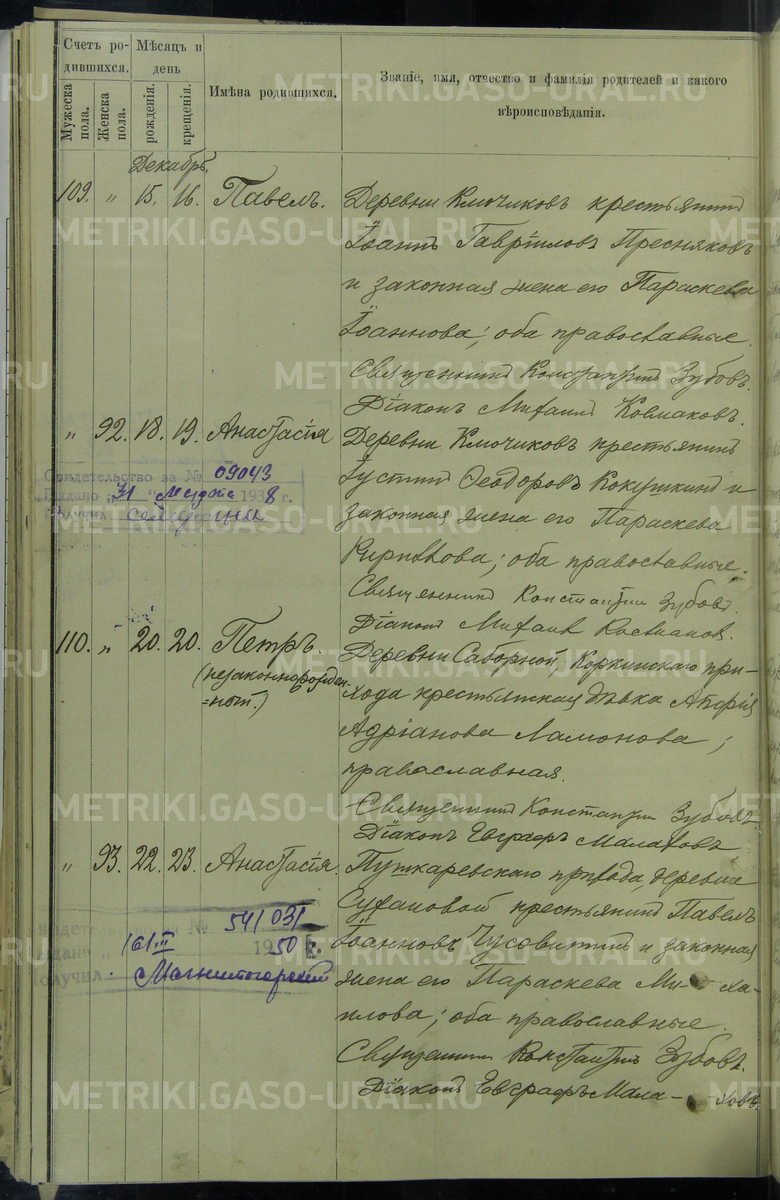 Счетъ ро-
дившихся.
Мѣсяцъ и
день
Мужеска
пола.
Женска
пола.
рожденія.
крещенія.
Имѣна родившихся.
Званіе, имя, отчество и фамилія родителей и какого
вѣроисповѣданія.
Декабрь.
109. „ 15. 16. Павелъ.
Деревни Ключиковъ крестьянинъ
Іоаннъ Гавріиловъ Пресняковъ
и законная жена его Параскева
Іоаннова; оба православные.
Священникъ Константинъ Зубовъ.
Діаконъ Михаилъ Колмаковъ.
„ 92. 18. 19. Анастасія
Деревни Ключиковъ крестьянинъ
Іустинъ Ѳеодоровъ Кокушкинъ и
законная жена его Параскева
Кириллова; оба православные.
Священникъ Константинъ Зубовъ.
Діаконъ Михаилъ Колмаковъ.
Свидетельство за № 09043
Выдано „31" 1938 г.
Получил
110. „ 20. 20. Петръ.
(незаконнорожден-
=ный.)
Деревни Саборной, Коркинскаго при-
хода крестьянская дѣвка
Адріанова Мамонова;
православная.
Священникъ Константинъ Зубовъ
Діаконъ Евграфъ Малаховъ
„ 93. 22. 23. Анастасія.
Пушкаревскаго прихода, деревни
крестьянинъ Павелъ
Іоанновъ Чусовитинъ и законная
жена его Параскева Ми- ха-
илова; оба православные.
Священникъ Константинъ Зубовъ.
Діаконъ Евграфъ Мала- ховъ.
№ 541031
16/III 1950 г.
Получил Магнитогорский
METRIKI.GASO-URAL.RU